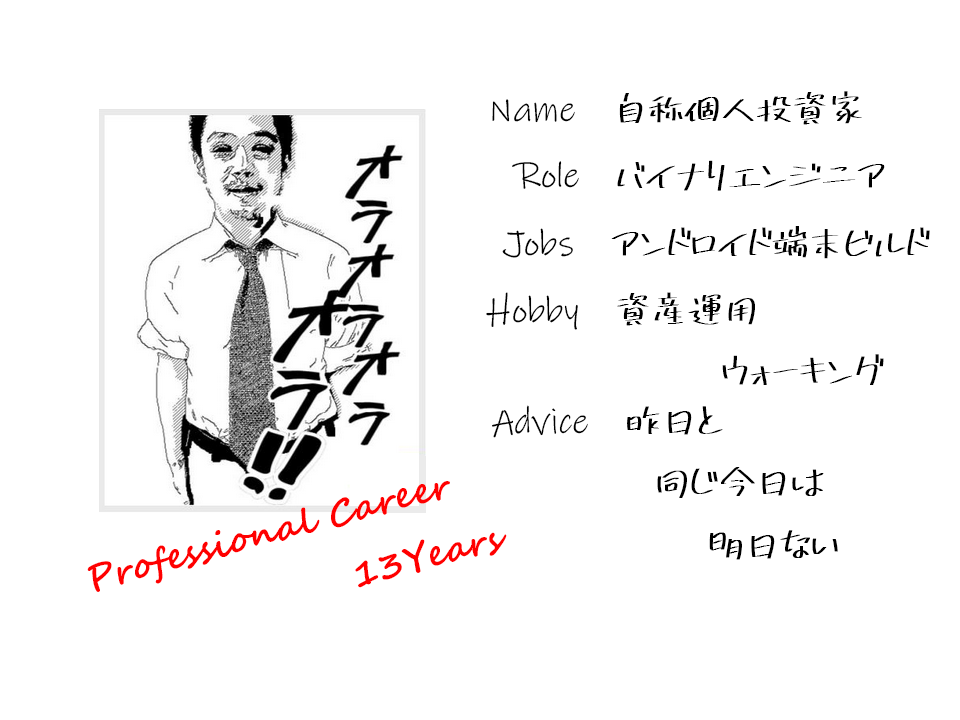 Name 自称個人投資家
Role バイナリエンジニア
Jobs アンドロイド端末ビルド
Hobby 資産運用
ウォーキング
Advice 昨日と
同じ今日は
明日ない
オラオラ
オラオラ
オラ!!
Professional Career
13Years